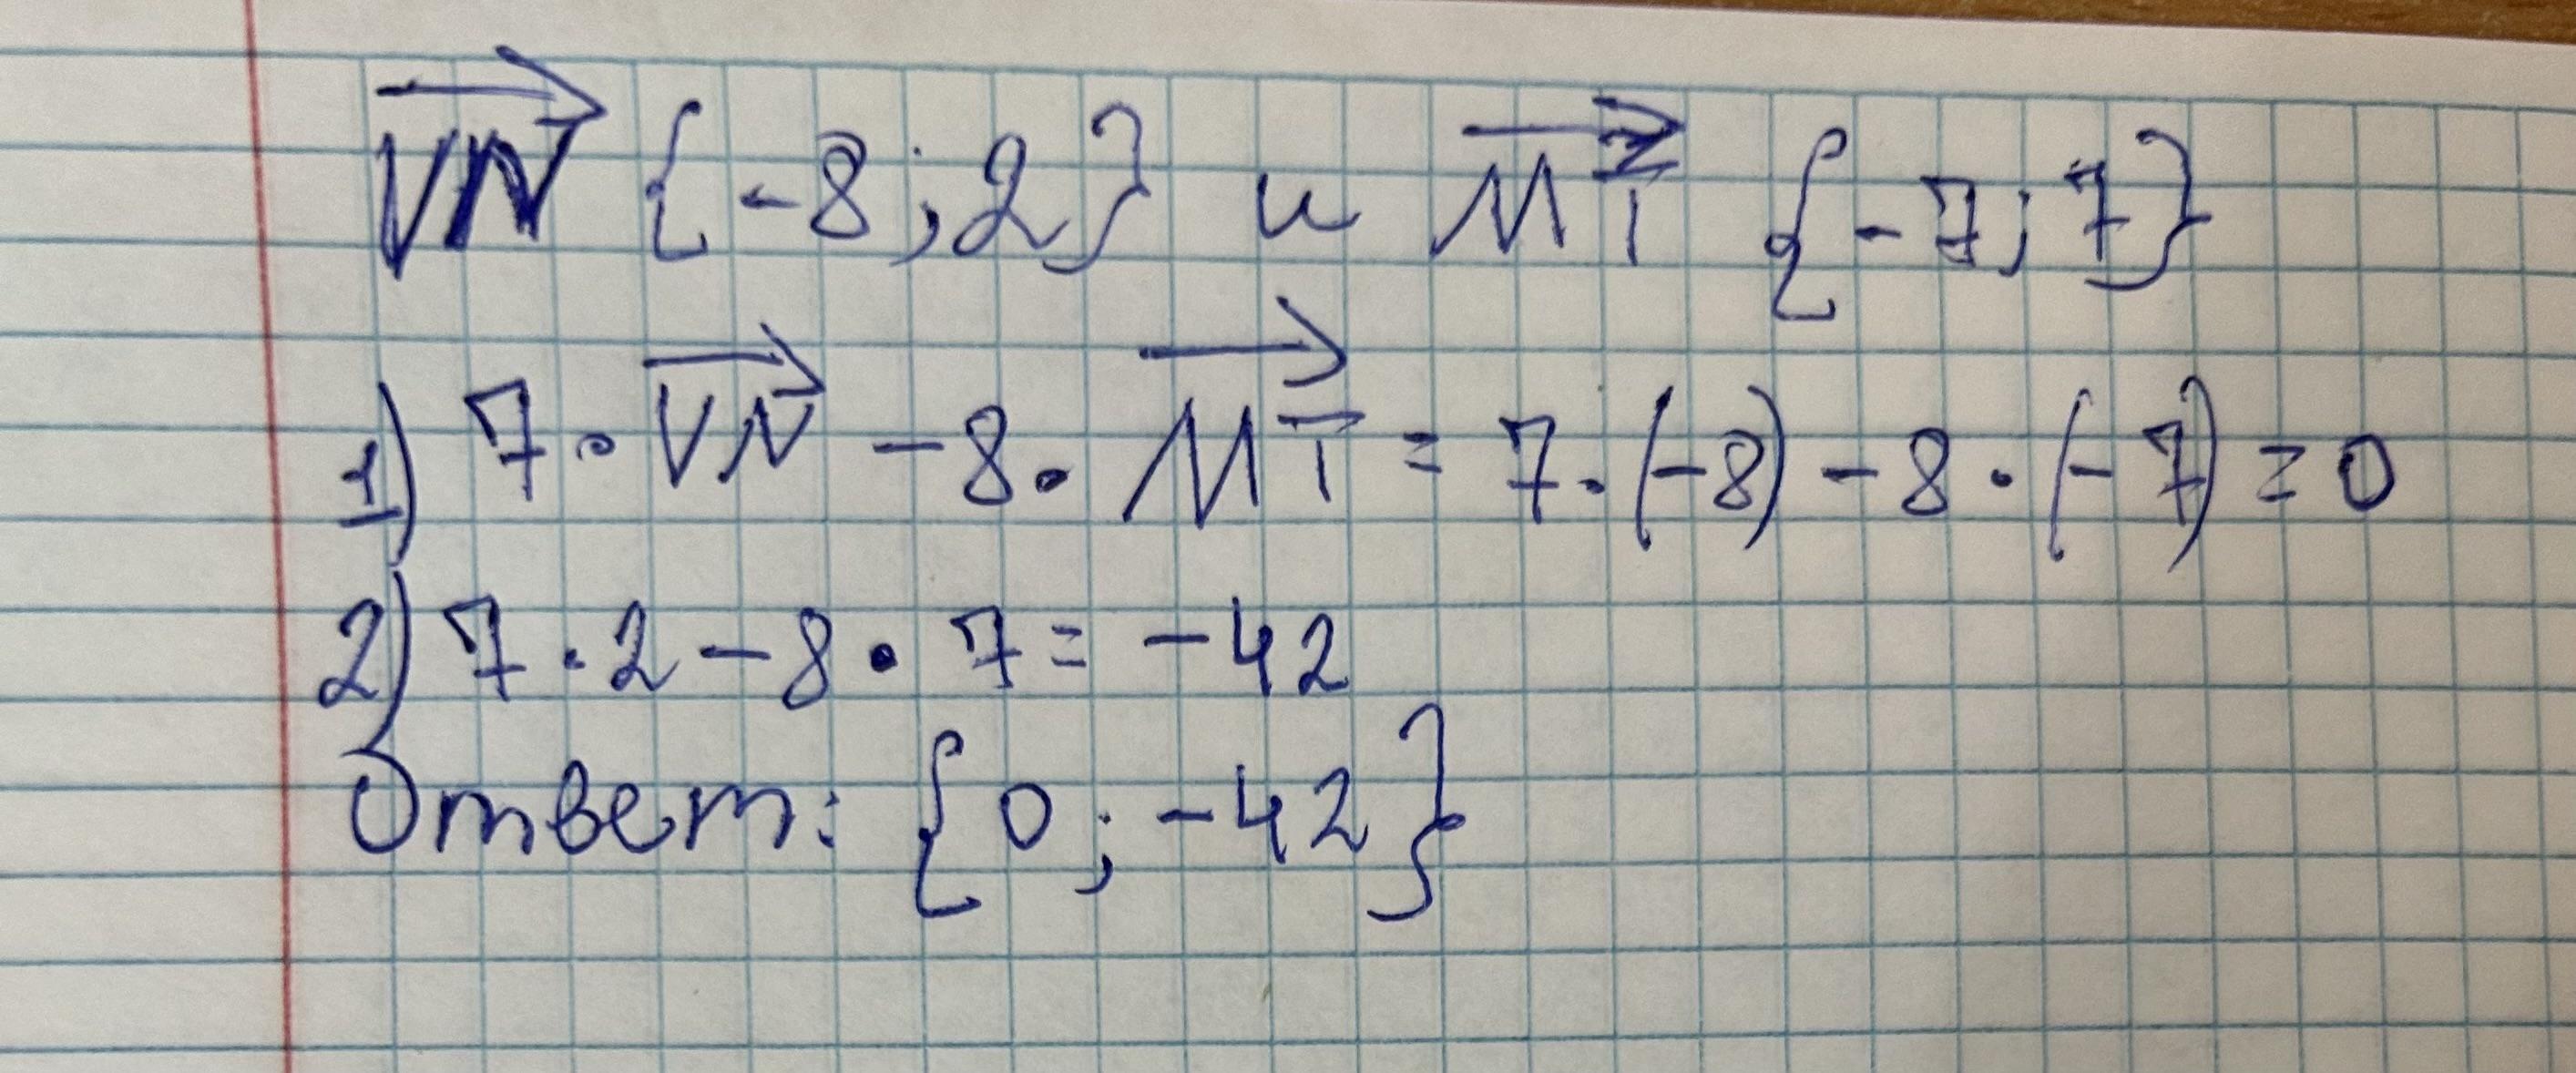 VN {-8;2} и MT {-7;7}
1) 7·VN -8·MT = 7·(-8)-8·(-7)=0
2) 7·2-8·7=-42
Ответ: {0;-42}